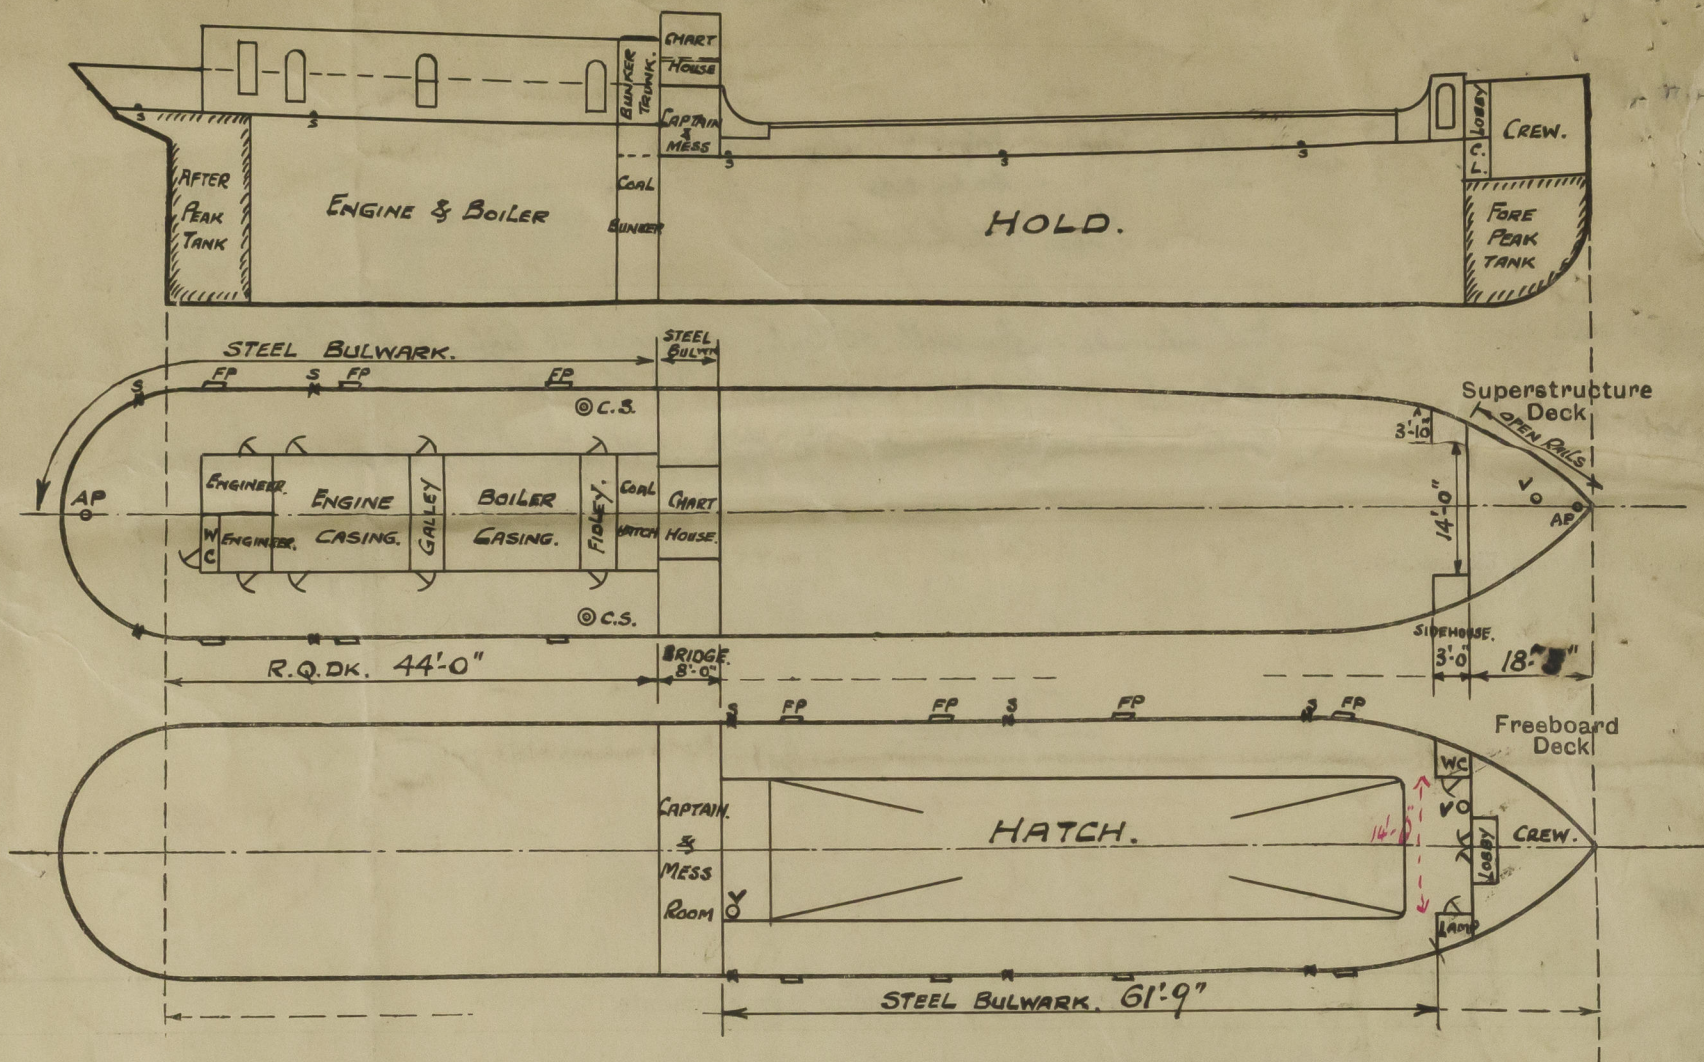 CHART
HOUSE
BUNKER
TRUNK.
CAPTAIN
&
MESS
S
S
S
S
S
LOBBY
C.
L.
CREW.
AFTER
PEAK
TANK
ENGINE & BOILER
COAL
BUNKER
HOLD.
FORE
PEAK
TANK
STEEL BULWARK.
STEEL
BULWK
S
FP
S
FP
FP
C.S.
Superstructure
Deck
OPEN RAILS
3'-10"
14'-0"
AP
ENGINEER.
WC
ENGINEER.
ENGINE
CASING.
GALLEY
BOILER
CASING.
FIDLEY.
COAL
HATCH
CHART
HOUSE.
V
AP
C.S.
SIDEHOUSE.
R.Q.DK. 44'-0"
BRIDGE.
8'-0"
3'-0"
S
FP
FP
S
FP
S
FP
Freeboard
Deck
CAPTAIN.
&
MESS
ROOM
V
HATCH.
14'-0"
WC
V
LOBBY
CREW.
LAMP
STEEL BULWARK. 61'-9"